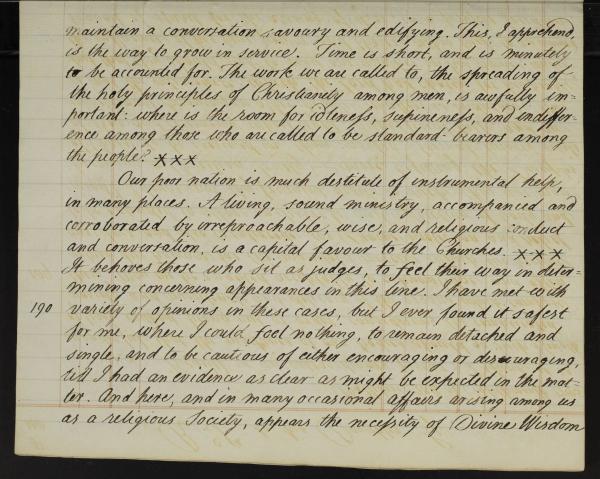 maintain a conversation savoury and edifying. This, I apprehend,
is the way to grow in service. Time is short, and is minutely
to be accounted for. The work we are called to, the spreading of
the holy principles of Christianity among men, is awfully im-
portant: where is the room for idleness, supineness, and indiffer-
ence among those who are called to be standard-bearers among
the people? x x x
Our poor nation is much destitute of instrumental help,
in many places. A living, sound ministry, accompanied and
corroborated by irreproachable, wise, and religious conduct
and conversation, is a capital favour to the Churches. x x x
It behoves those who sit as judges, to feel their way in deter-
mining concerning appearances in this line. I have met with
190 variety of opinions in these cases, but I ever found it safest
for me, where I could feel nothing, to remain detached and
single, and to be cautious of either encouraging or discouraging,
till I had an evidence as clear as might be expected in the mat-
ter. And here, and in many occasional affairs arising among us
as a religious Society, appears the necessity of Divine Wisdom